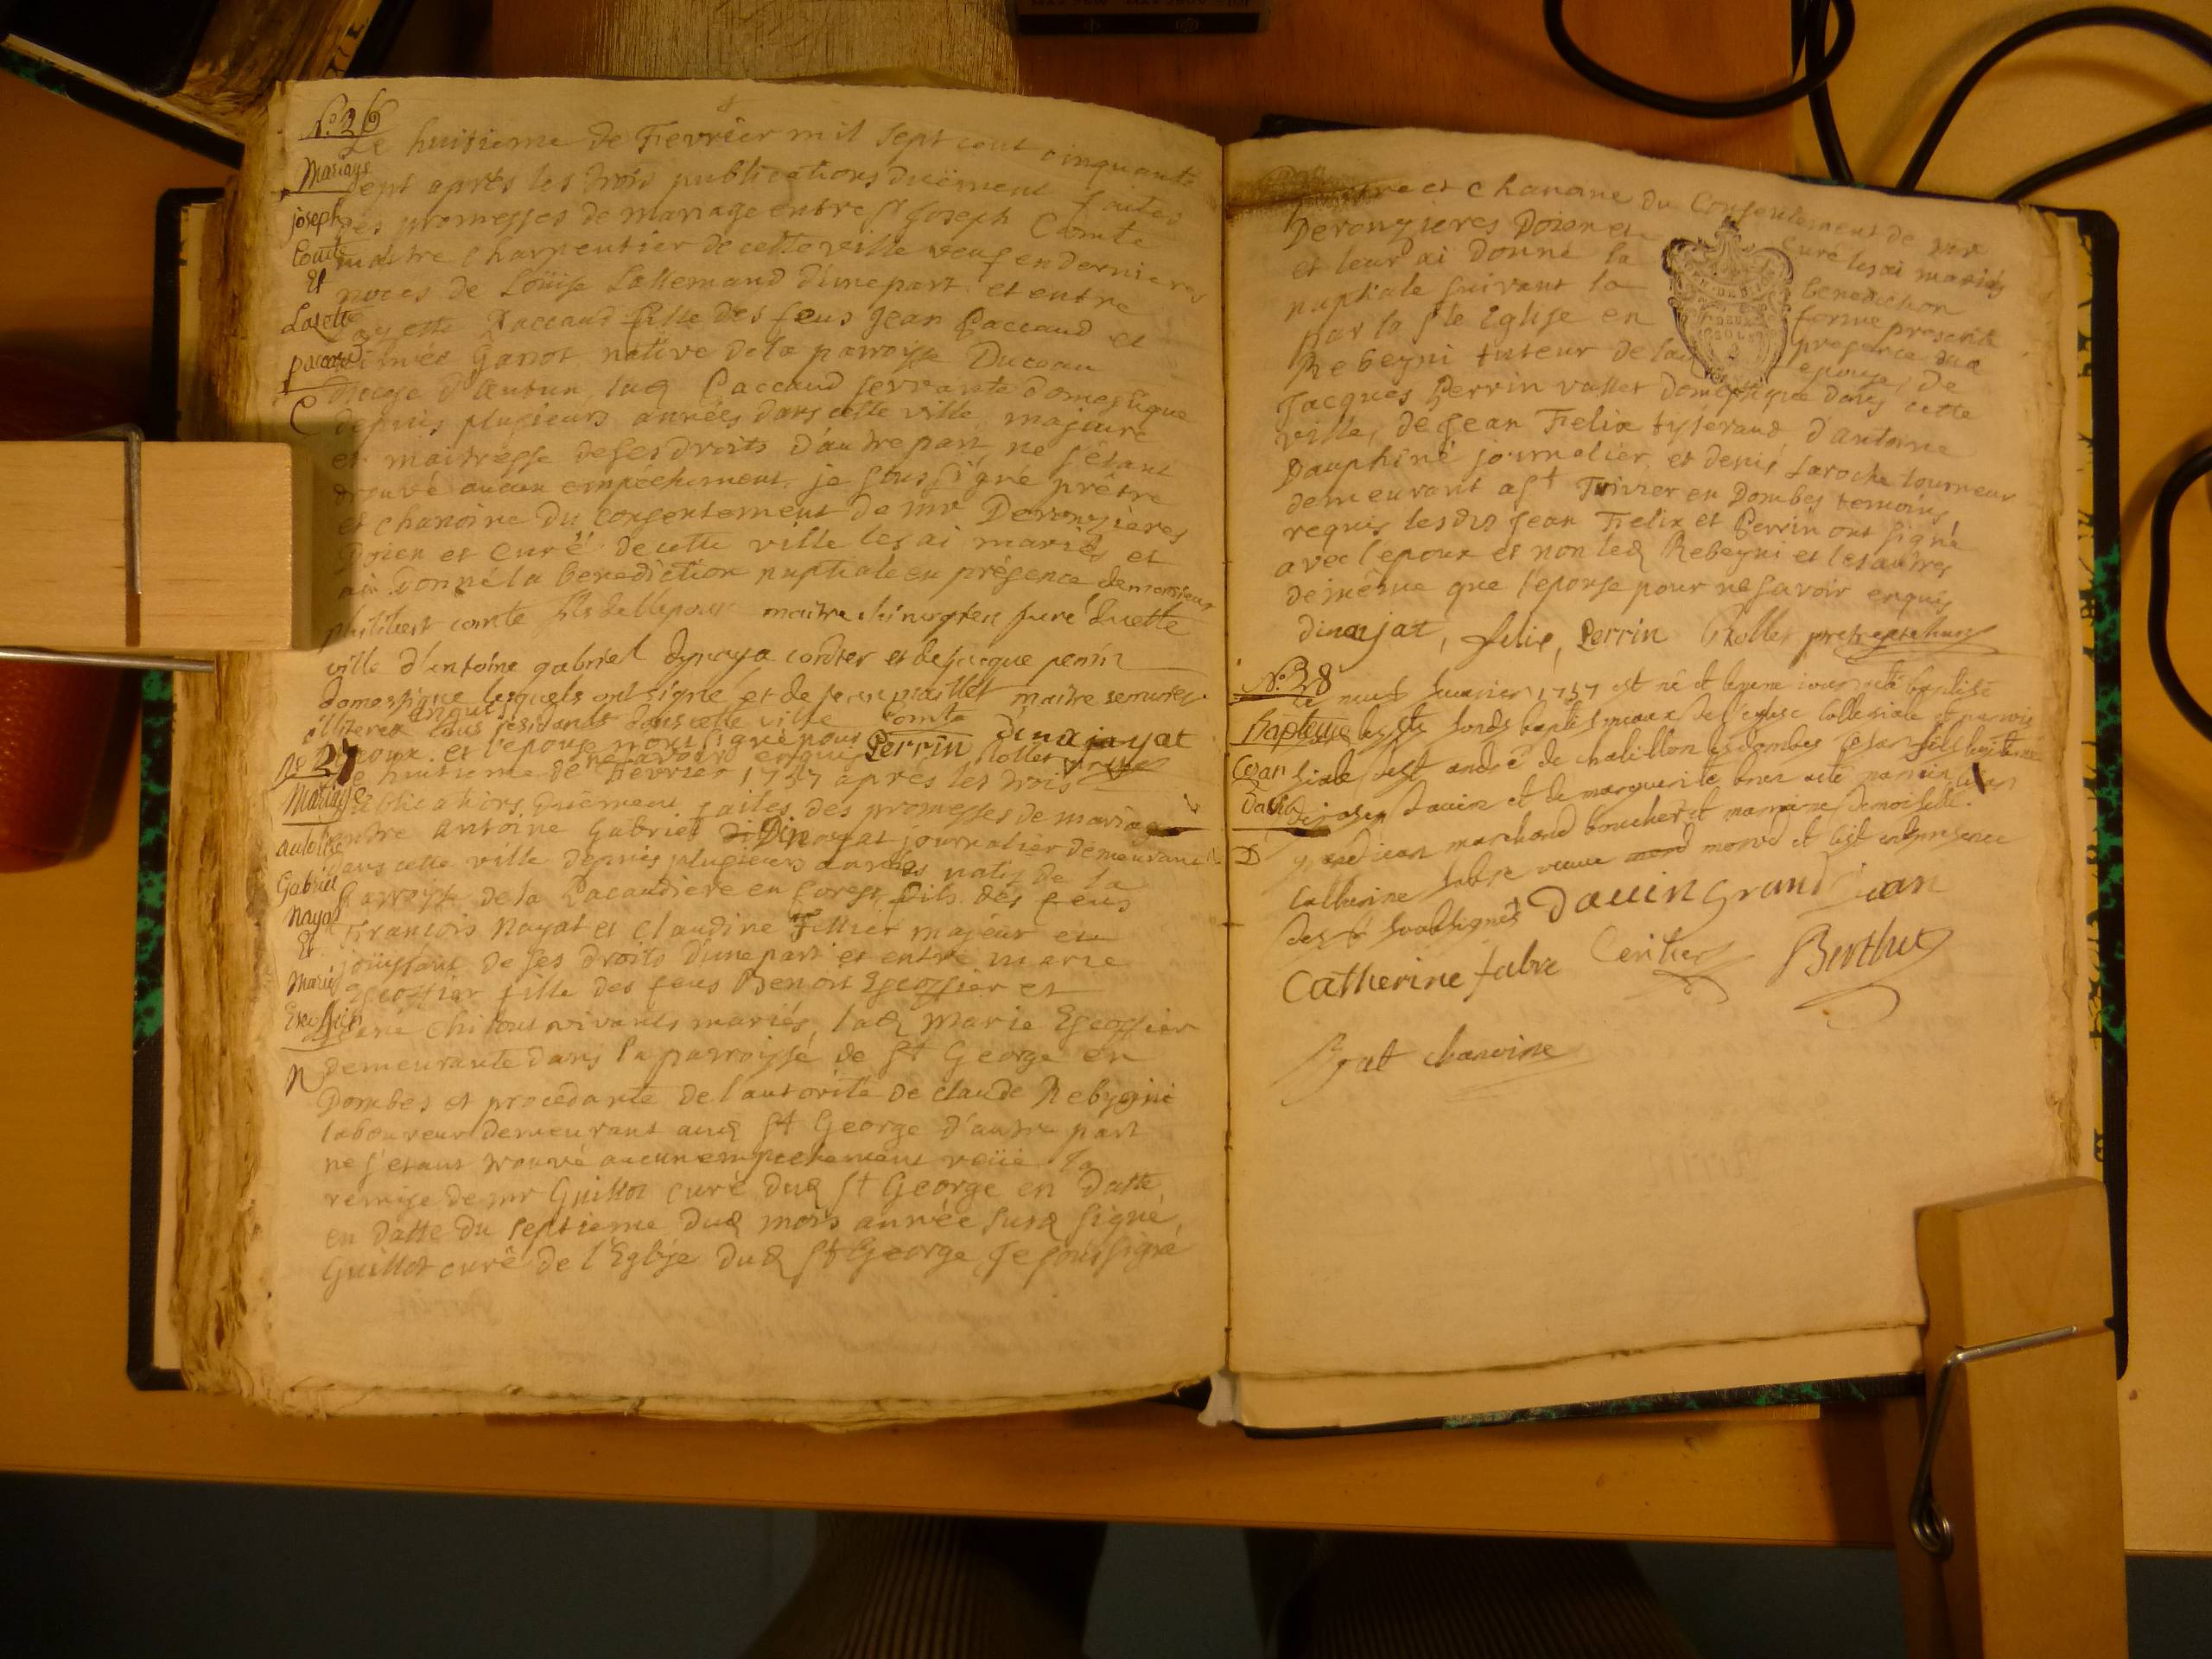 N.º 26
Le huitieme de Fevrier mil sept cent cinquante
Mariage
sept aprés les trois publications duëment faites
joseph
des promesses de mariage entre Sr Joseph Comte
Comte
maitre charpentier de cette ville veuf en dernieres
Et
noces de Loüise Lallemand d'une part et entre
Lazette
Lazette Paccaud fille des feus Jean Paccaud et
paccaud
Ganot native de la parroisse Duceau
Diocese d'Autun, lad Paccaud servante domestique
C
depuis plusieurs années dans cette ville, majeure
et maitresse de ses droits d'autre part, ne s'étant
trouvé aucun empéchement, je soussigné prêtre
et chanoine du consentement de mr Deronzières
Doien et Curé de cette ville les ai mariés et
ai donné la benediction nuptiale en présence de monsieur
philibert comte fils de l'epoux maitre chirurgien juré d cette
ville d'entoine gabriel dynaya cordier et de jacque perrin
domestique lesquels ont signé et de maitre serrurier
illiteré tous résidants dans cette ville Comte dinajayat
epoux et l'epouse non signé pour ne savoir enquis Perrin Rollet prêtre
No 27
Le huitieme de Fevrier 1757 aprés les trois
Mariage
publications duëment faites des promesses de mariage
antoine
entre Antoine Gabriel Dinayat journalier demeurant
dans cette ville depuis plusieurs années natif de la
Gabriel
Parroisse de la Pacaudiere en forest fils des feus
Nayat
François Nayat et Claudine Tillier majeur et
Et
joüissant de ses droits d'une part et entre marie
Marie
Escoffier fille des feus Benoit Escoffier et
Escoffier
vivants mariés, lad Marie Escoffier
demeurante dans la parroisse de St George en
N
Dombes et procedante de l'autorité de claude Rebeyni
laboureur demeurant aud St George d'autre part
ne s'étant trouvé aucun empechement veüe la
remise de mr Guillot curé dud St George en datte
en datte du septieme dud mois année susd signé,
Guillot curé de l'Eglise dud St George, Je soussigné
prêtre et Chanoine du Consentement de mr
Deronzieres Doien et curé les ai mariés
et leur ai donné la benediction
nuptiale suivant la forme presente
par la ste Eglise en presence dud
Rebeyni tuteur de lad epouse, de
Jacques Perrin vallet domestique dans cette
ville, de Jean Felix tyserand, d'antoine
Dauphiné journalier, et denis Laroche tourneur
demeurant a St Trivier en Dombes temoins
requis lesdits Jean Felix et Perrin ont signé
avec l'epoux et non led Rebeyni et les autres
de même que l'epouse pour ne savoir enquis
dinajat, felix, Perrin Rollet pretre
No. 28
Le neuf fevrier 1757 est né et le même iour a eté baptisé
Bapteme
sur les sts fonds baptismaux de l'eglise collegiale et paroissiale
Cezar
de st andré de chatillon les dombes Cesar fils
Dauin
de Dauin et de marguerite a eté parrain Cesar
D
grandiean marchand boucher et marraine demoiselle
Catherine fabre veuve morod et c'est en presence
des soubsignés Dauin Grand Jean
Catherine fabre Berthet
chanoine